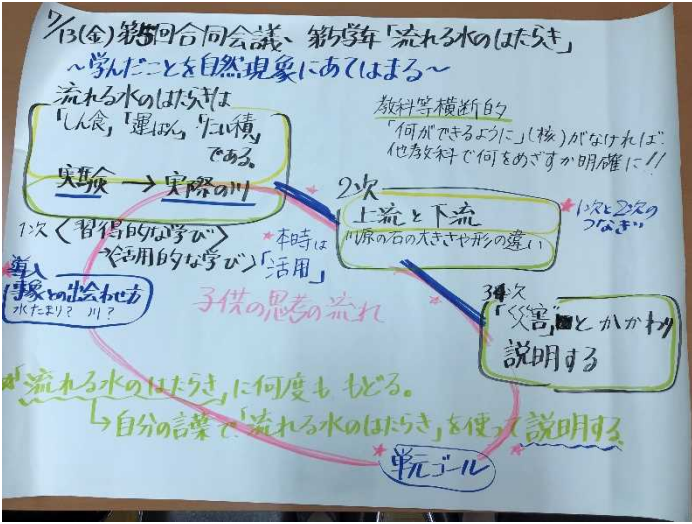 7/13(金)第5回合同会議、第5学年「流れる水のはたらき」
～学んだことを自然現象にあてはまる～
流れる水のはたらきは
「しん食」「運ぱん」「たい積」
である。
実験 → 実際の川
教科等横断的
「何ができるように」(核)がなければ
他教科で何をめざすか明確に!!
2次
上流と下流
川原の石の大きさや形の違い
1次と2次の
つなぎ
1次〈習得的な学び〉
→〈活用的な学び〉
本時は
「活用」
導入
事象との出会わせ方
水たまり? 川?
子供の思考の流れ
3次
「災害」とかかわり
説明する
「流れる水のはたらき」に何度ももどる。
↳自分の言葉で「流れる水のはたらき」を使って説明する
単元ゴール